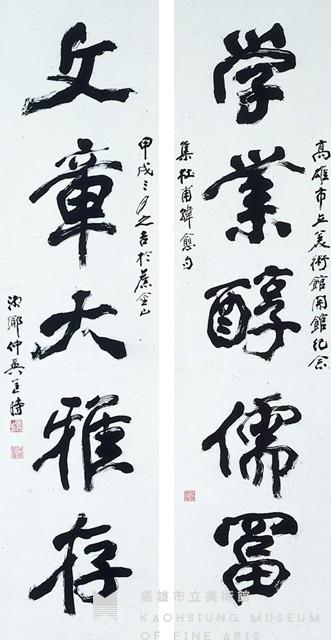 高雄市立美術館開館紀念
学業醇儒富
集杜甫韓愈句
甲戌三月之吉於金山
文章大雅存
仲英
高雄市立美術館
KAOHSIUNG MUSEUM
OF FINE ARTS